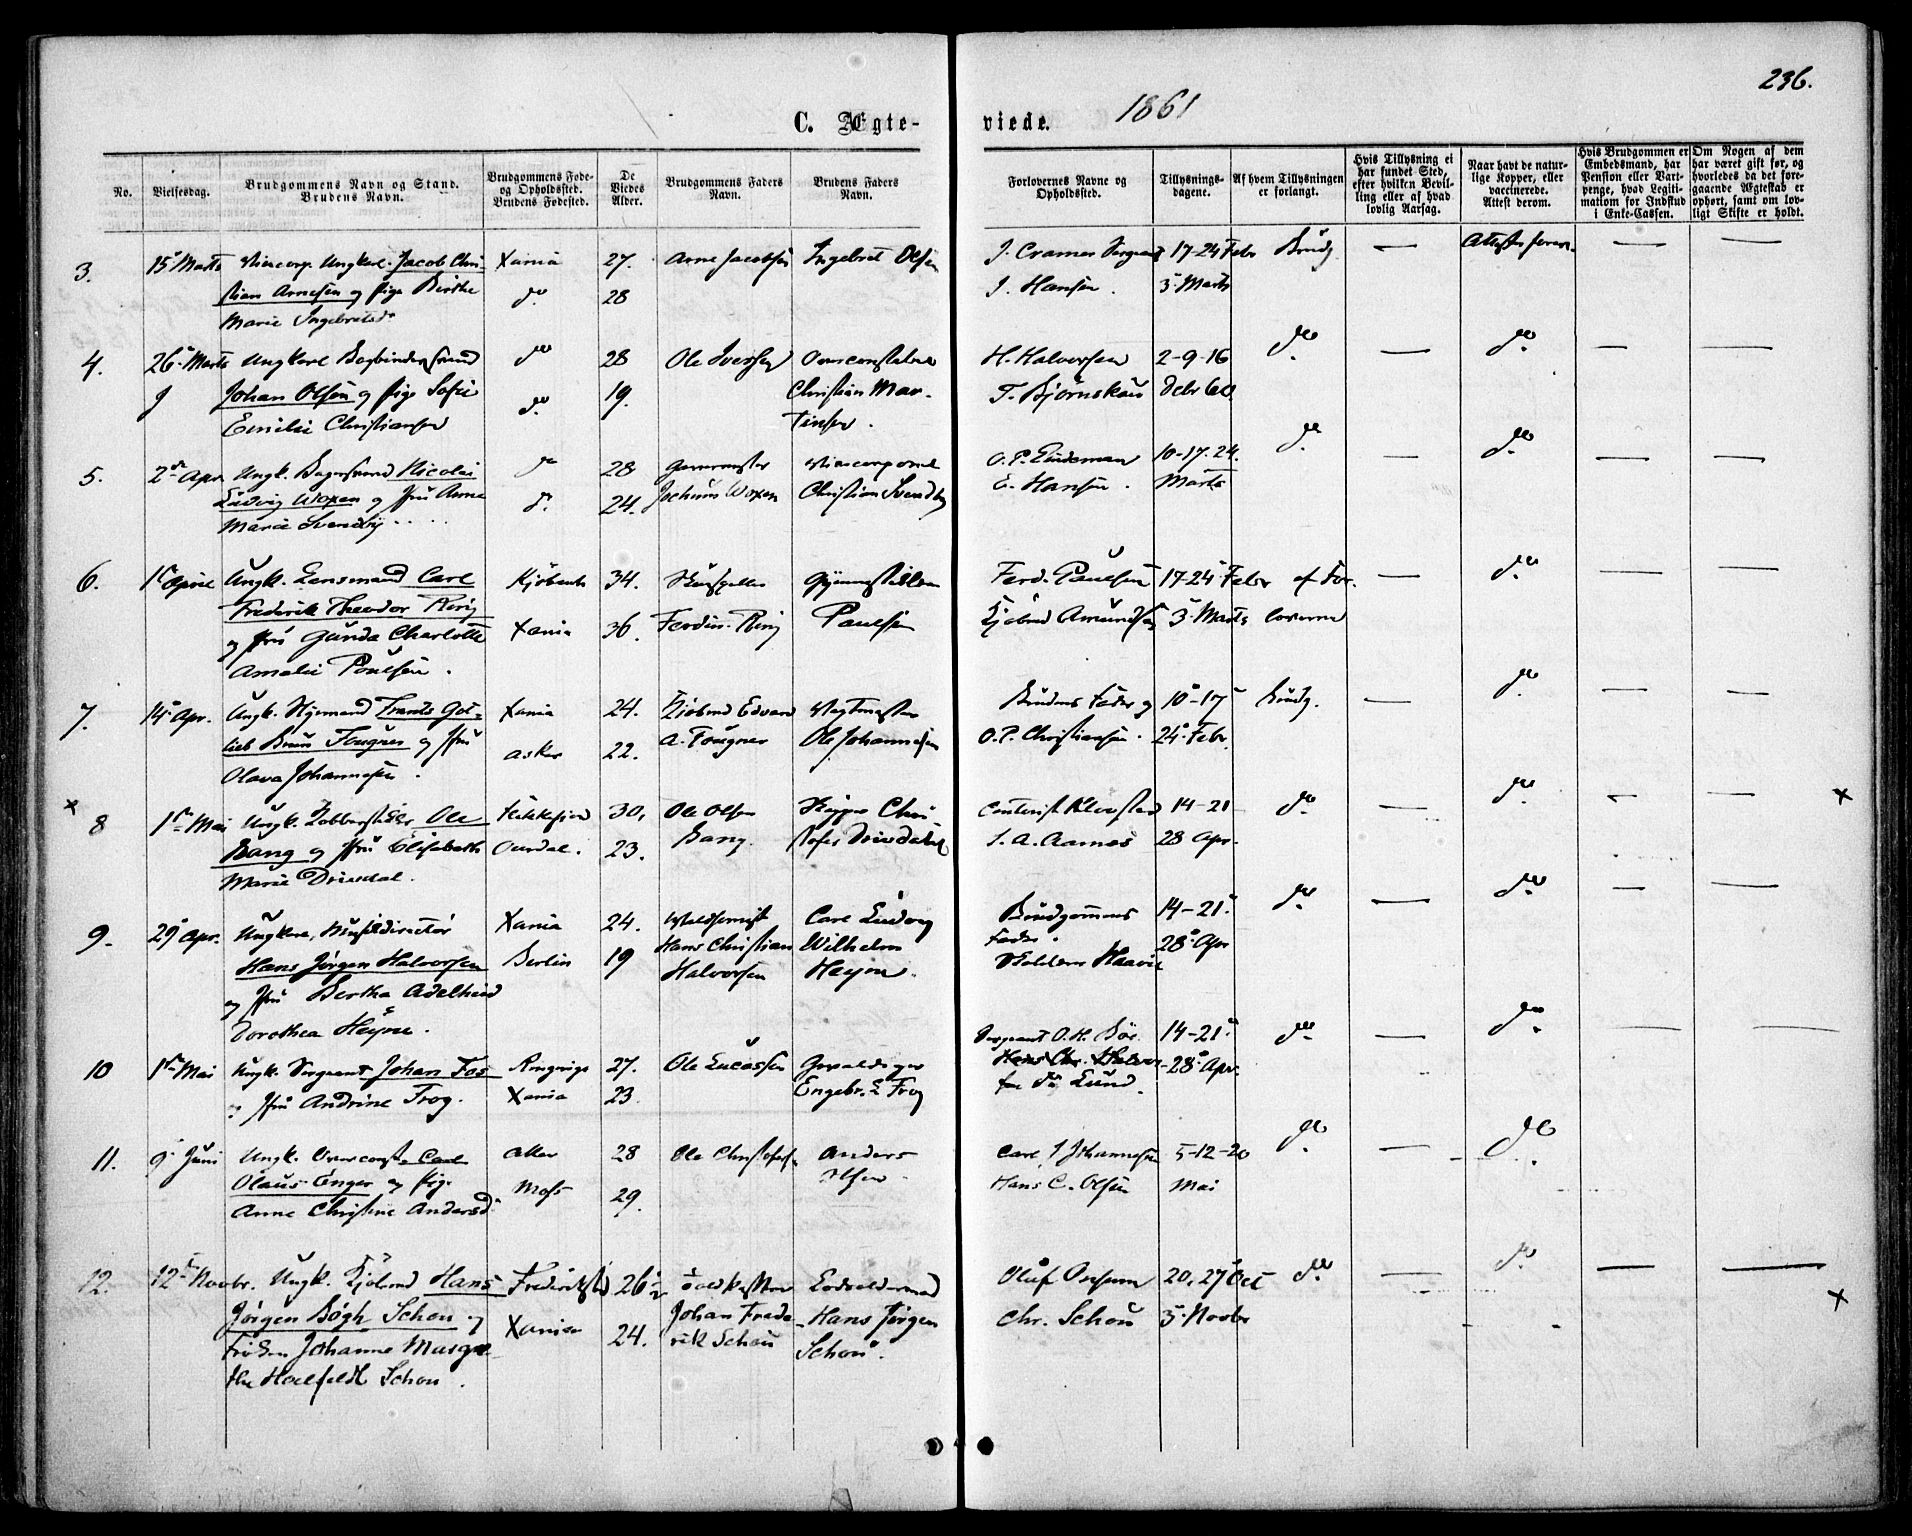 236.
C. Ægte-
viede.
1861
No.
Vielsesdag.
Brudgommens Navn og Stand.
Brudens Navn.
Brudgommens Føde-
og Opholdssted.
Brudens Fødested.
De
Viedes
Alder.
Brudgommens Faders
Navn.
Brudens Faders
Navn.
Forlovernes Navne og
Opholdssted.
Tillysnings-
dagene.
Af hvem Tillysningen
er forlangt.
Hvis Tillysning ei
har fundet Sted,
efter hvilken Bevil-
ling eller af hvad
lovlig Aarsag.
Naar havt de natur-
lige Kopper, eller
vaccinerede.
Attest derom.
Hvis Brudgommen er
Embedsmand, har
Pension eller Vart-
penge, hvad Legiti-
mation for Indskud
i Enke-Cassen.
Om Nogen af dem
har været gift før, og
hvorledes da det fore-
gaaende Ægteskab er
ophørt, samt om lov-
ligt Skifte er holdt.
3.
15 Marts
Ungkarl. Jacob Chri-
stian Arnesen og Pige Birthe
Marie Ingebretsd.
Xania
do.
27.
28
Arne Jacobsen
Ingebret Olsen
J. Cramer Sergeant
J. Hansen.
17-24 Febr
3 Marts
Brudg.
4.
26 Marts
Ungkarl Bogbindersvend
Johan Olsen og Pige Sofie
Emilie Christiansen
do
do.
28
19.
Ole Iversen
Overconstabel
Christian Mar-
tinsen.
H. Halvorsen
T. Bjørnskau
2-9-16
Debr 60.
do.
do.
5.
2 Apr.
Ungk. Bagersvend Nicolai
Ludvig Woxen og Jfru Anne
Marie Svendby
do
do.
28
24.
Jochum Woxen
Christian Svendby
O. P. Lindeman
E. Hansen.
10-17-24.
Marts
do.
do.
6.
1 April
Ungk. Lensmand Carl
Frederik Theodor Ring
og Jfru Gunda Charlotte
Amalie Poulsen.
Kjøbenh
Xania
34.
36.
Ferdin. Ring
Paulsen
Ferd. Paulsen
Kjøbmd Amundsen
17-24 Febr
3 Marts
af For-
loverne
do.
7.
14 Apr.
Ungk. Styrmand Frants Got-
lieb Bruun Fougner og Jfru
Olava Johannesen.
Xania
Asker
24.
22.
Kjøbmd Edvard
A. Fougner
Vegtmester
Ole Johannesen
Brudens Fader og
O. P. Christiansen.
10-17
24 Febr.
Brudg.
do.
x
8
1 Mai
Ungk. Kobberstikker Ole
Bang og Jfru Elisabeth
Marie Drivdal.
Flekkefiord
Ourdal.
30,
23.
Ole Olsen
Bang.
Skipper Chri-
stofer Drivdahl
Contorist Klovstad
S. A. Aarnes
14-21
28 Apr.
do
do.
x
9.
29 Apr.
Ungkarl, Musikdirectør
Hans Jørgen Halvorsen
og Jfru Bertha Adelheid
Dorothea Heyne.
Xania
Berlin
24.
19
Hans Christian
Halvorsen
Carl Ludvig
Wilhelm
Heyne.
Brudgommens
Fader.
14-21
28 Apr
do.
do.
10
1 Mai
Ungk. Sergeant Johan Fos
og Jfru Andrine Frog.
Ringerige
Xania
27.
23.
Ole Lucassen
Gevaldiger
Engebr. L Frog
Sergeant O. H. Bøe
Lund.
14-21
28 Apr.
do.
do.
11.
9 Juni
Ungk. Overconst. Carl
Olaus Enger og Pige
Anne Christine Andersd.
Aker
Moss
28
29.
Ole Christofers.
Anders
Olsen.
Carl J Johannesen
Hans C. Olsen
5-12-20
Mai
do.
do.
12.
12 Novbr.
Ungk. Kjøbmd Hans
Jørgen Bøgh Schou og
Frøken Johanne Margre
the Hoelfeldt Schou.
Frederikstd
Xania
26½
24.
Toldkasserer
Johan Frede-
rik Schou
Hans Jørgen
Schou.
Oluf Onsum
Chr. Schou
20, 27 Oct
3 Novbr
do.
do.
x